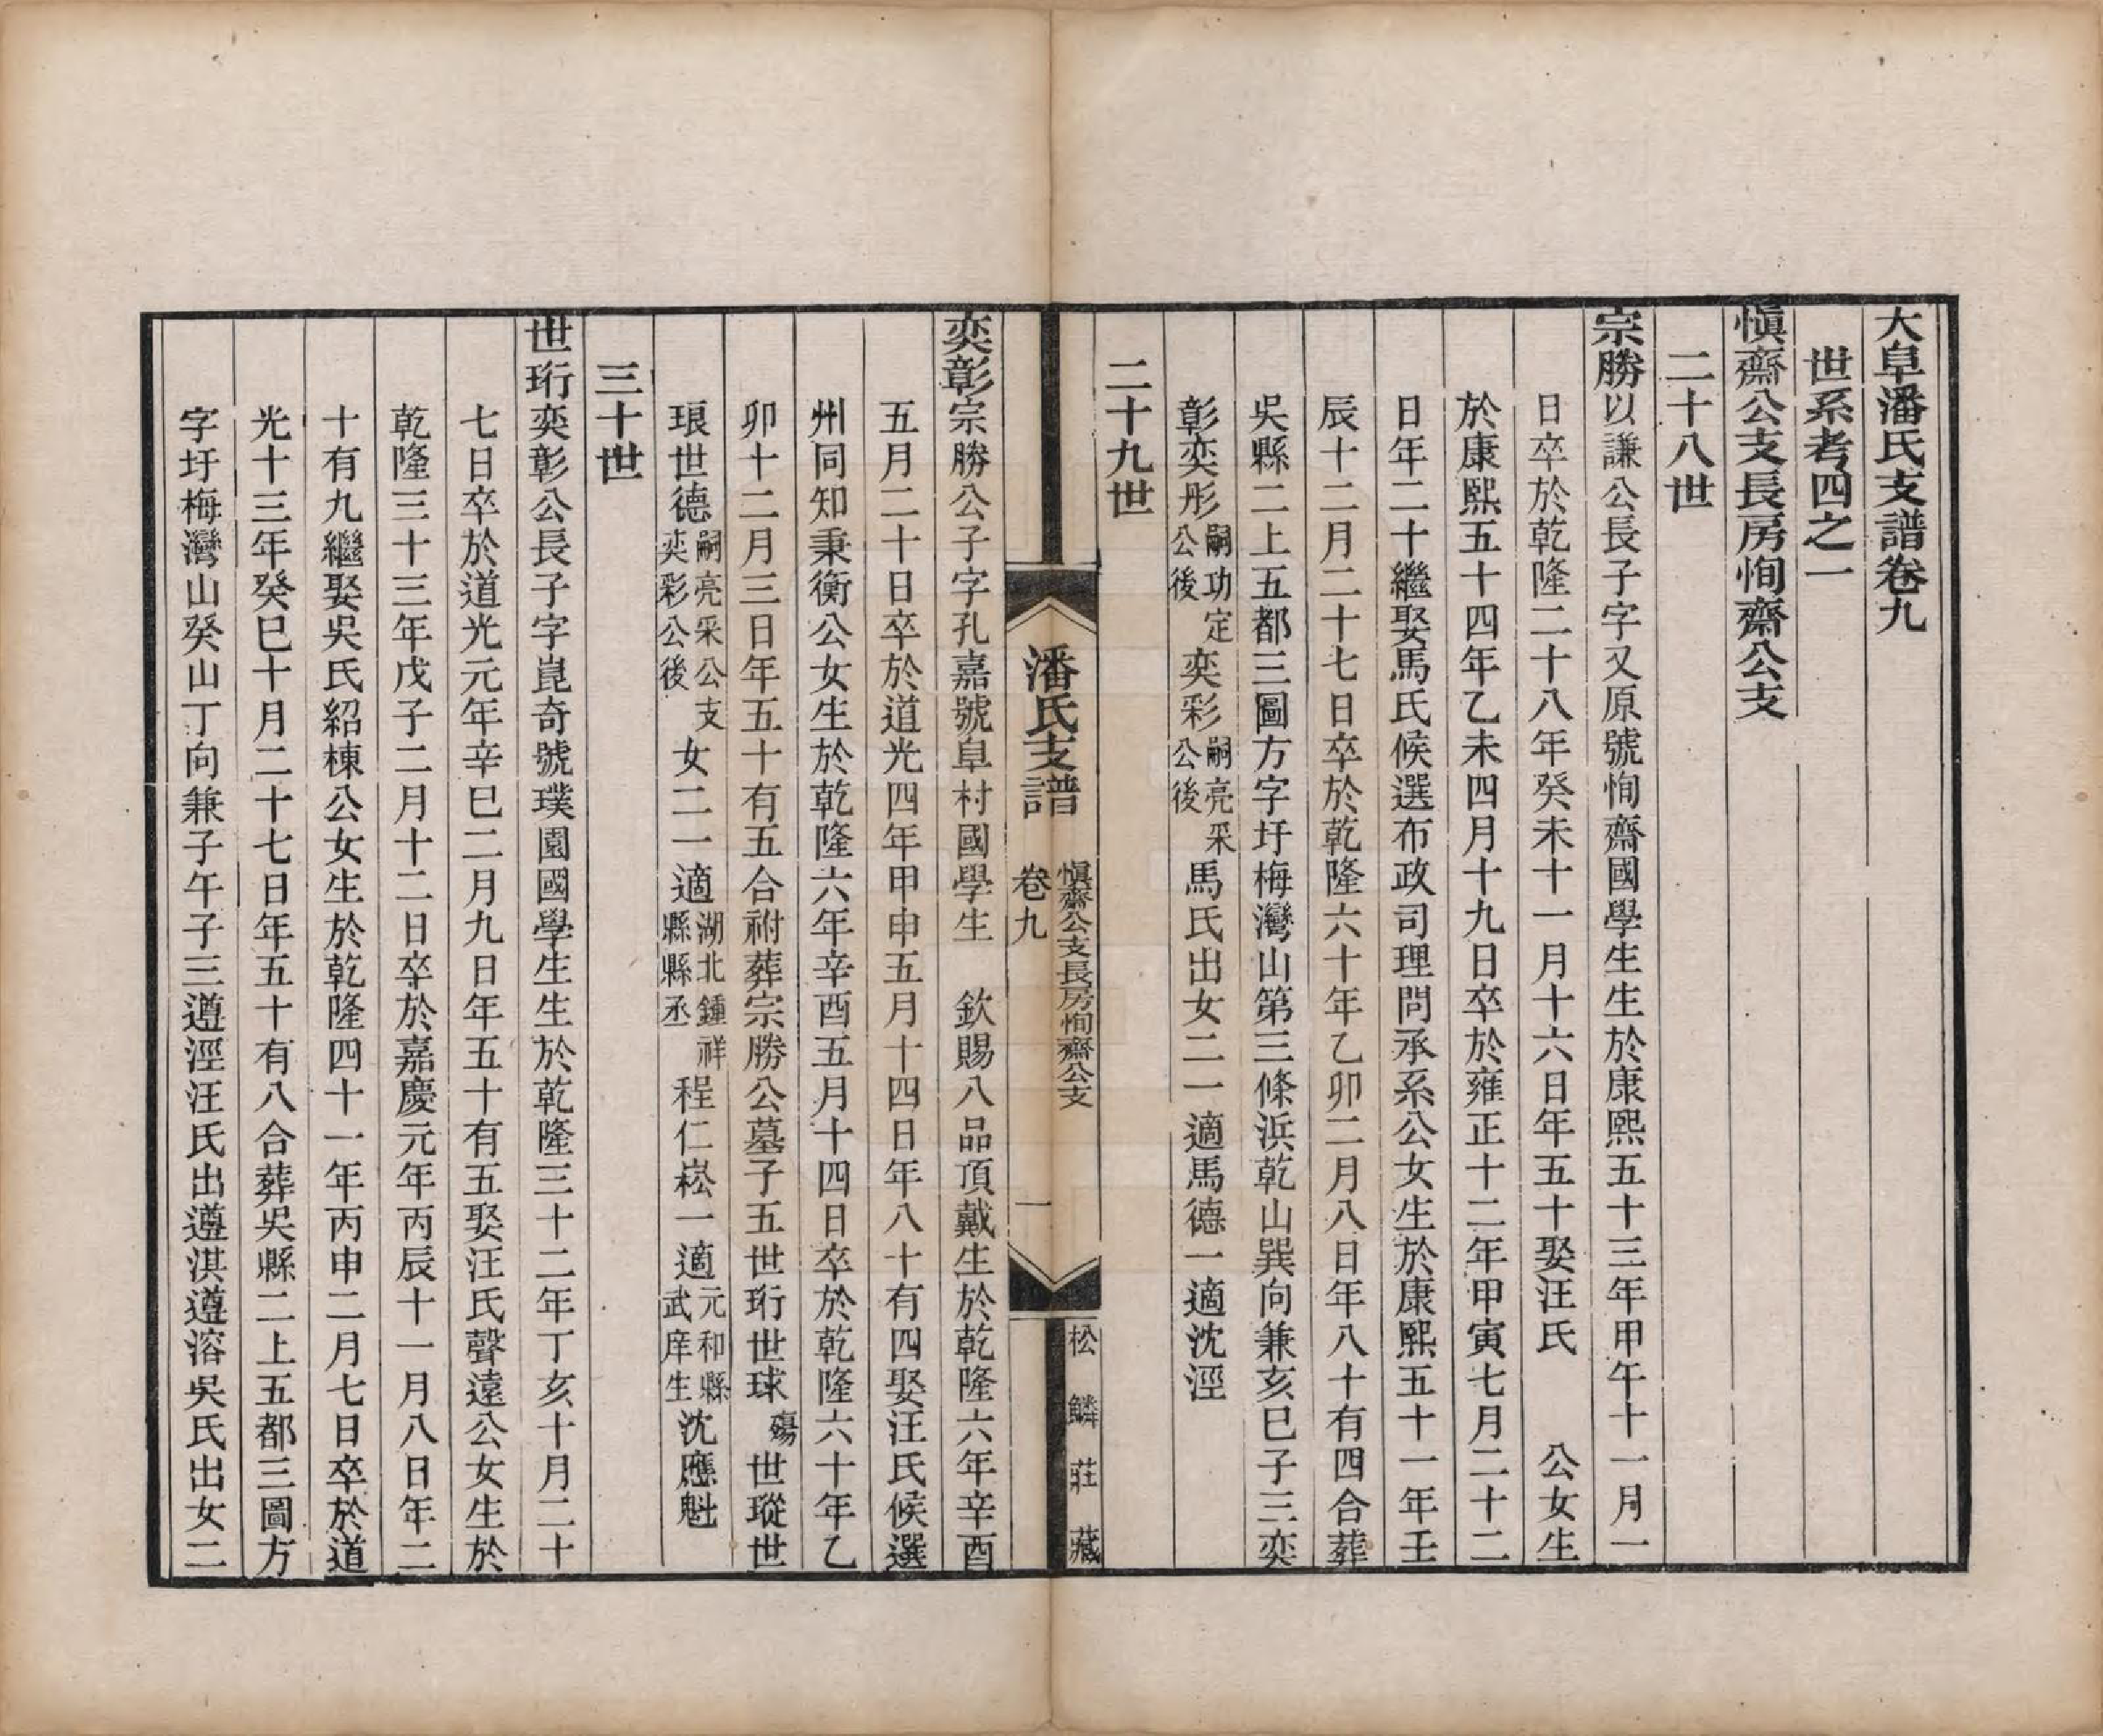 大阜潘氏支譜卷九
世系考四之一
愼齋公支長房恂齋公支
二十八世
宗勝以謙公長子字又原號恂齋國學生生於康熙五十三年甲午十一月一
日卒於乾隆二十八年癸未十一月十六日年五十娶汪氏　　公女生
於康熙五十四年乙未四月十九日卒於雍正十二年甲寅七月二十二
日年二十繼娶馬氏候選布政司理問承系公女生於康熙五十一年壬
辰十二月二十七日卒於乾隆六十年乙卯二月八日年八十有四合葬
吳縣二上五都三圖方字圩梅灣山第三條浜乾山巽向兼亥巳子三奕
彰奕彤嗣功定公後奕彩嗣亮采公後馬氏出女二一適馬德一適沈涇
二十九世
潘氏支譜　卷九　愼齋公支長房恂齋公支　一　松鱗莊藏
奕彰宗勝公子字孔嘉號阜村國學生　欽賜八品頂戴生於乾隆六年辛酉
五月二十日卒於道光四年甲申五月十四日年八十有四娶汪氏候選
州同知秉衡公女生於乾隆六年辛酉五月十四日卒於乾隆六十年乙
卯十二月三日年五十有五合祔葬宗勝公墓子五世珩世球殤世瑽世
琅世德嗣亮采公支奕彩公後女二一適湖北鍾祥縣縣丞程仁崧一適元和縣武庠生沈應魁
三十世
世珩奕彰公長子字崑奇號璞園國學生生於乾隆三十二年丁亥十月二十
七日卒於道光元年辛巳二月九日年五十有五娶汪氏聲遠公女生於
乾隆三十三年戊子二月十二日卒於嘉慶元年丙辰十一月八日年二
十有九繼娶吳氏紹棟公女生於乾隆四十一年丙申二月七日卒於道
光十三年癸巳十月二十七日年五十有八合葬吳縣二上五都三圖方
字圩梅灣山癸山丁向兼子午子三遵涇汪氏出遵淇遵溶吳氏出女二